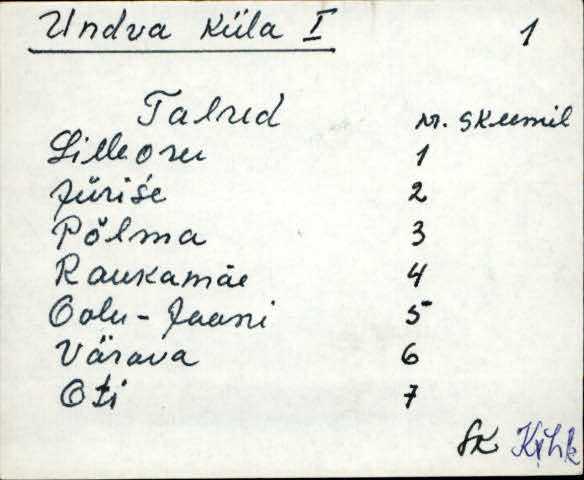 Undva Küla I 1
Talud nr. skeemil
Lilleoru 1
Jüriše 2
Põlma 3
Raukamäe 4
Oolu-Jaani 5
Värava 6
Oti 7
SK Kihk